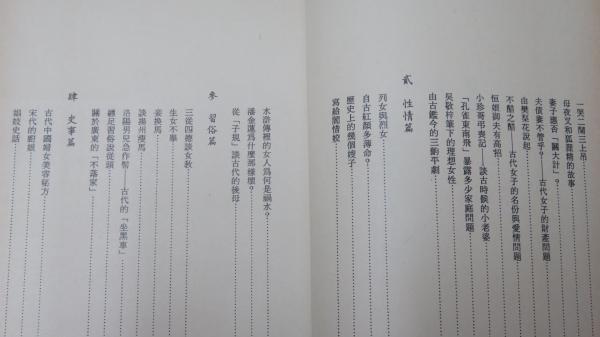 一哭二鬧三上吊
母夜叉和狐狸精的故事
妻子還否「關大計」？
夫債妻不管乎？——古代女子的財產問題
由樊梨花說起
不醋之醋——古代女子的名份與愛情問題
恒娘御夫有高招
小珍哥弔喪記——談古時候的小老婆
「孔雀東南飛」暴露多少家庭問題
吳敬梓筆下的理想女性
由古鑑今的三齣平劇
貳 性情篇
列女與烈女
自古紅顏多薄命？
歷史上的幾個嫂子
寫給閨情姣
水滸傳裡的女人爲何是禍水？
潘金蓮爲什麼那樣壞？
從「子規」談古代的後母
參 習俗篇
三從四德談女教
生女不舉
妾換馬
談揚州瘦馬
洛陽男兒急作智——古代的「坐黑車」
纏足習俗說從頭
關於廣東的「不落家」
肆 史事篇
古代中國婦女美容秘方
宋代的廚娘
娼妓史話